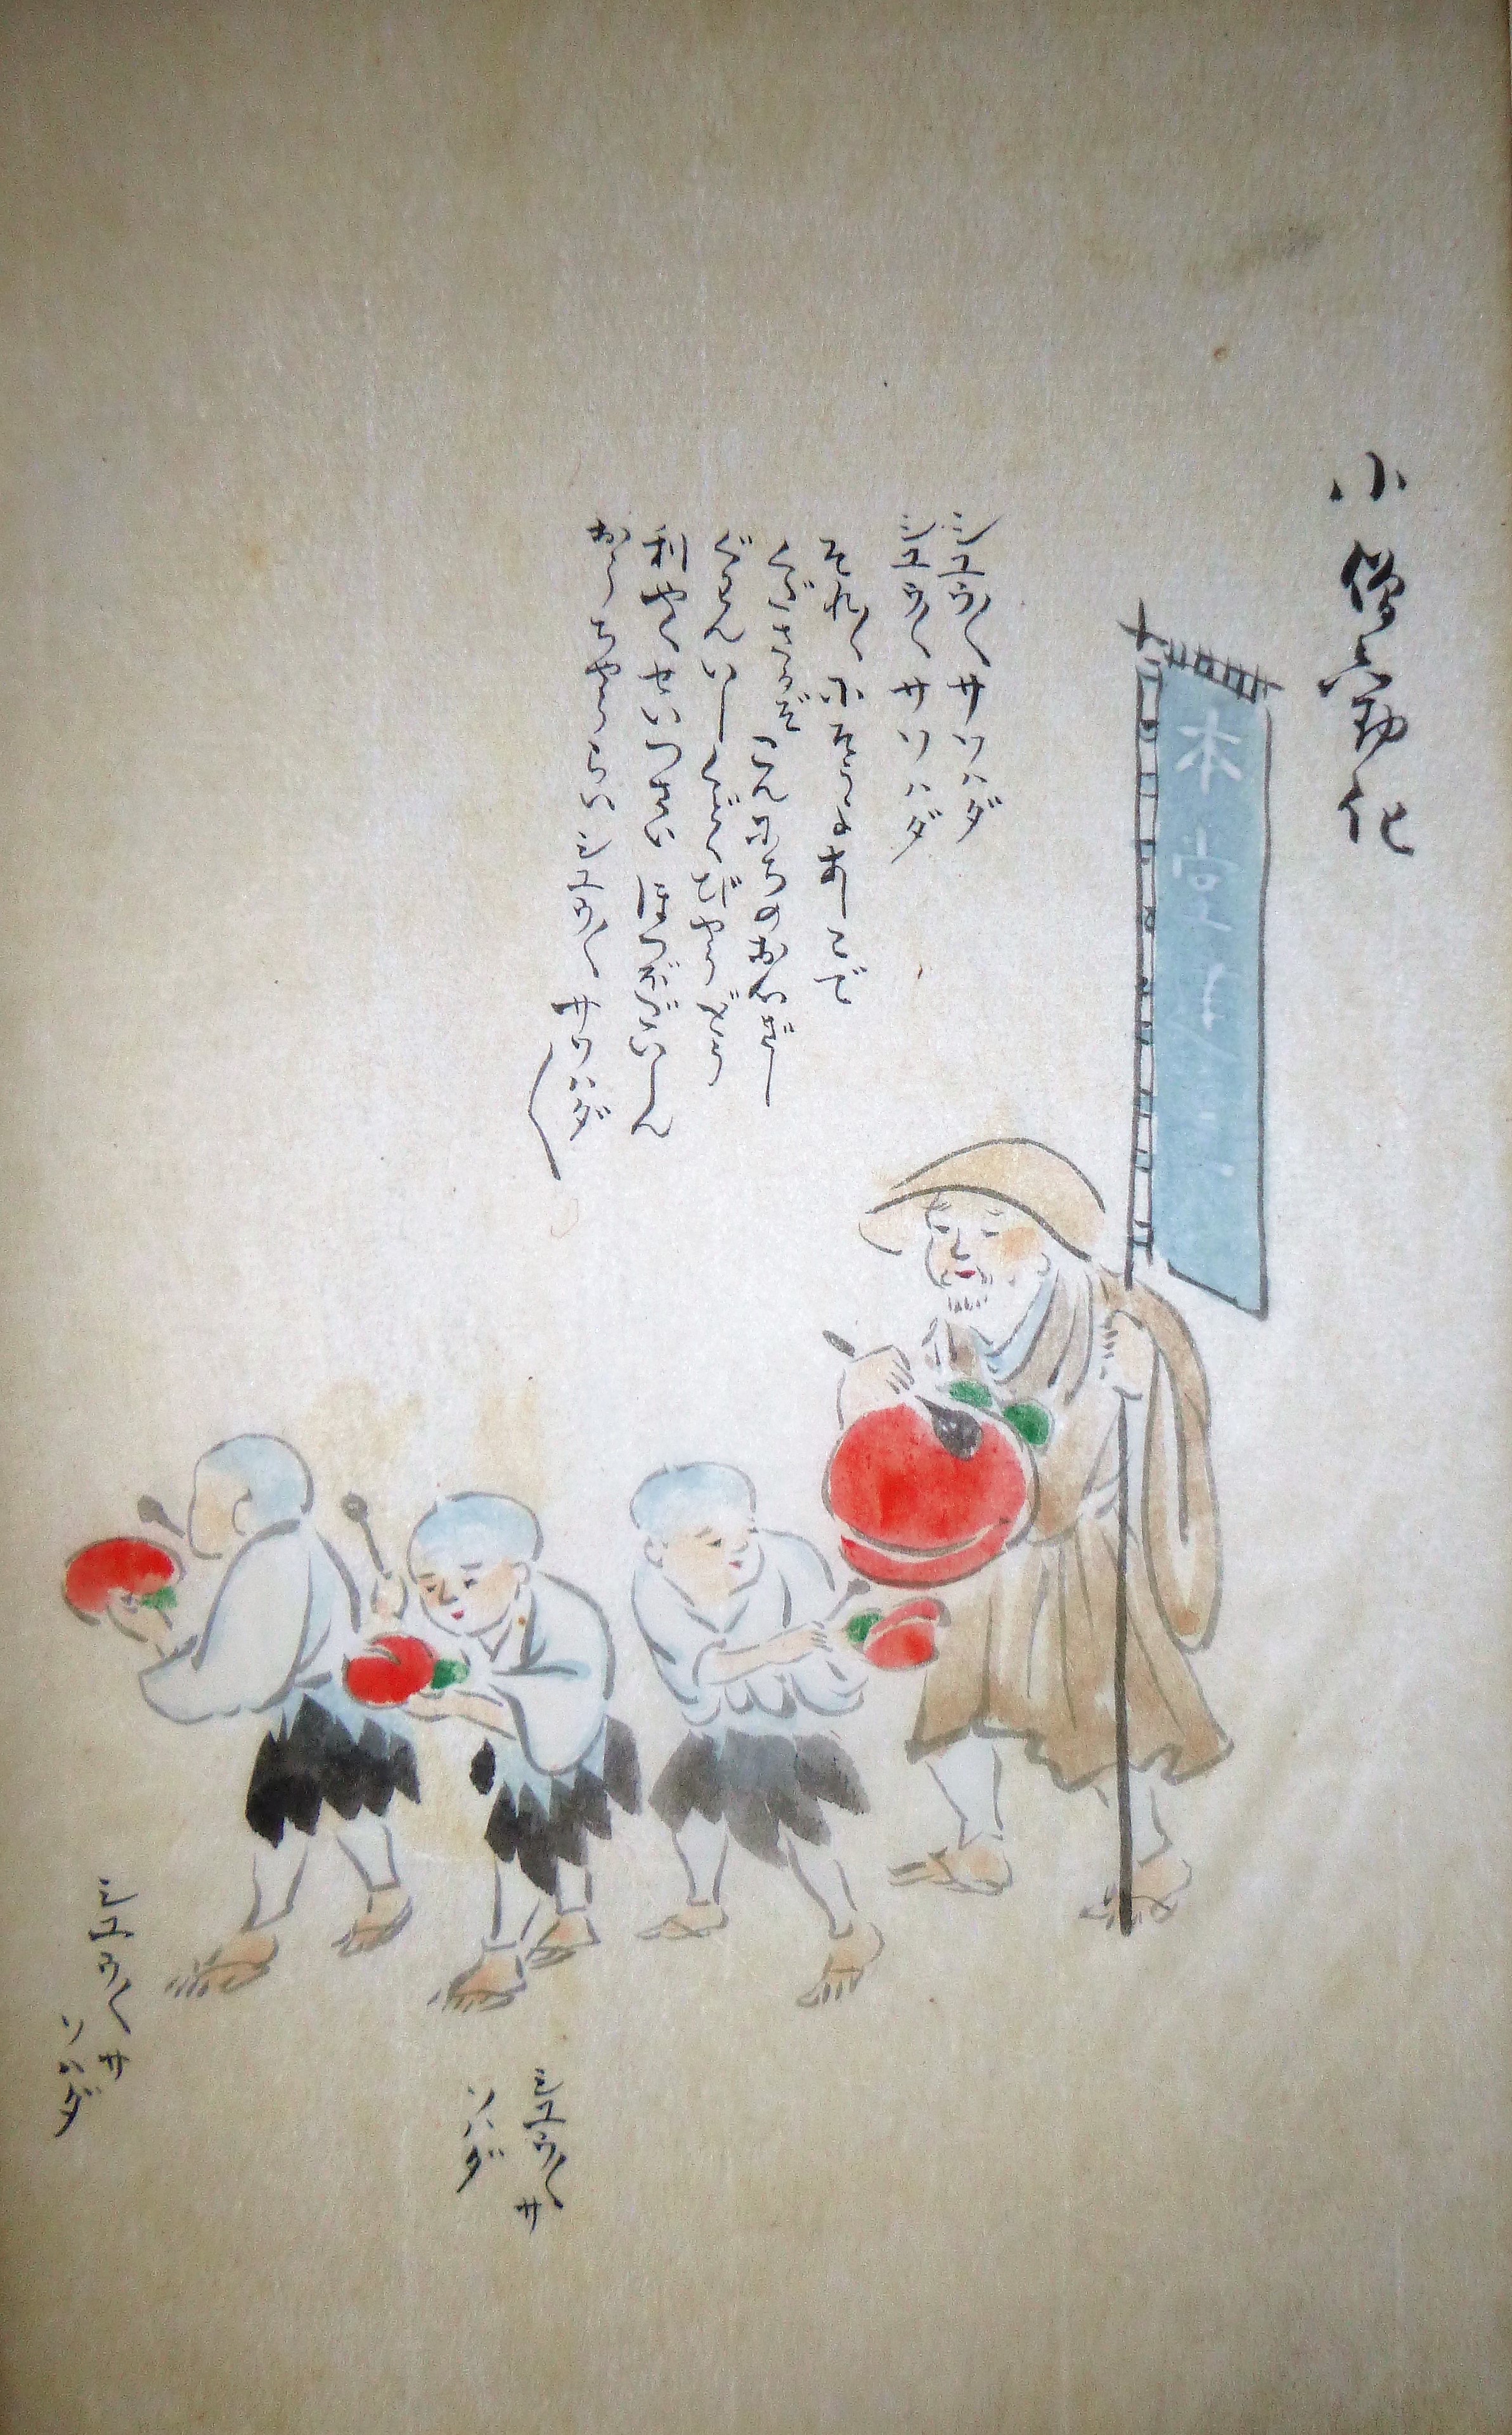 小僧之勧化
本堂
シユウ〱サソハダ
シユウ〱サソハダ
それ〱小そうよあしこで
くださるぞこんにちのおんぎし
ぐせんいしくどくびやうどう
利やくせいつさいほつぼだいしん
おうちやうらいシユウ〱サソハダ
シユウ〱サ
ソハダ
シユウ〱サ
ソハダ